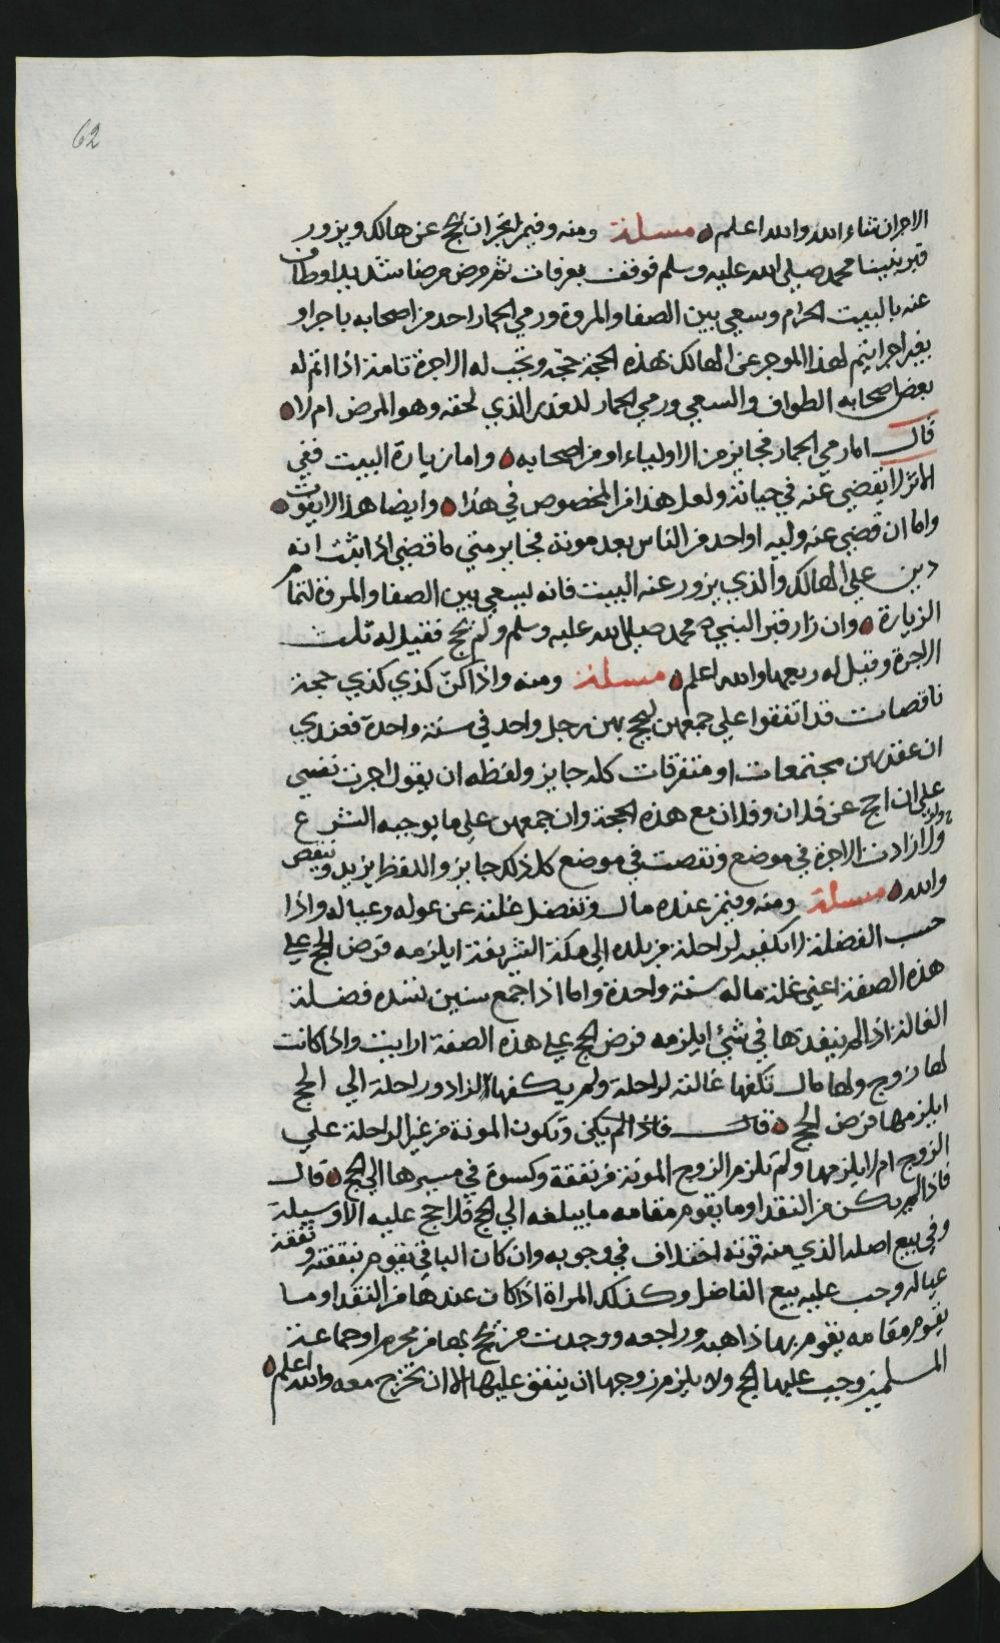 62
الاجر ان شاء الله والله اعلم مسئلة ومنه وفيمن اتجر ان يحج عن هالك ويزور
قبر نبينا محمد صلى الله عليه وسلم فوقف بعرفات ثم مرض مرضا شديدا وطاف
عنه بالبيت الحرام وسعي بين الصفا والمروة ورمي الجمار احد من اصحابه باجر او
بغير اجر ايتم لهذا الموجر عن الهالك هذه الحجة حجته وتجب له الاجرة تامة اذا اتم له
بعض اصحابه الطواف والسعي ورمي الجمار للعذر الذي لحقه وهو المرض ام لا
قال اما رمي الجمار فجايز من الاولياء او من اصحابه واما زيارة البيت ففي
الاثر لا يقضي عنه في حياته ولعل هذا من المخصوص في هذا وايضا هذا لا يفوت
واما ان قضي عنه وليه او احد من الناس بعد موته فجايز متي ما قضي اذا ثبت انه
دين علي الهالك والذي يزور عنه البيت فانه يسعي بين الصفا والمروة لتمام
الزيارة وان زار قبر النبي محمد صلى الله عليه وسلم ولم يحج فقيل له ثلث
الاجرة وقيل له ربعها والله اعلم مسئلة ومنه واذا كن كذي كذي حجة
ناقصات قد اتفقوا علي جمعهن ليحج بهن رجل واحد في سنة واحدة فعندي
ان عقدهن مجتمعات او متفرقات كله جايز ولفظه ان يقول اجرت نفسي
علي ان احج عن فلان وفلان مع هذه الحجة وان جمعهن علي ما يوجبه الشرع
ولو زادت الاجرة في موضع ونقصت في موضع كل ذلك جايز واللفظ يزيد وينقص
والله مسئلة ومنه وفيمن عنده مال وتفضل غلته عن عوله وعياله واذا
حسب الفضلة لا تكفيه لراحلة من بلده الي مكة الشريفة ايلزمه فرض الحج علي
هذه الصفة اعني غلة ماله سنة واحدة واما اذا جمع سنين تسده فضلة
الغالة اذا لم ينفدها في شئ ايلزمه فرض الحج علي هذه الصفة ارايت واذا كانت
لها زوج ولها مال تكفها غالته لراحلة ولم يكفها لزاد وراحلة الي الحج
ايلزمها فرض الحج قال فاذا لم يكن وتكون المونة من غير الراحلة علي
الزوج ام لا يلزمها ولم تلزم الزوج المونة من نفقة وكسوة في مسيرها الي الحج قال
فاذا لم يكن من النقد او ما يقوم مقامه ما يبلغه الي الحج فلا حج عليه الا وسيلة
وفي بيع اصله الذي منه قوته اختلاف في وجوبه وان كان الباقي يقوم بنفقته ونفقة
عياله وجب عليه بيع الفاضل وكذلك المراة اذا كان عندها من النقد او ما
يقوم مقامه يقوم بها ذاهبه وراجعه ووجدت من يحج بها من محرم او جماعة
المسلمين وجب عليها الحج ولا يلزم زوجها ان ينفق عليها الا ان تخرج معه والله اعلم